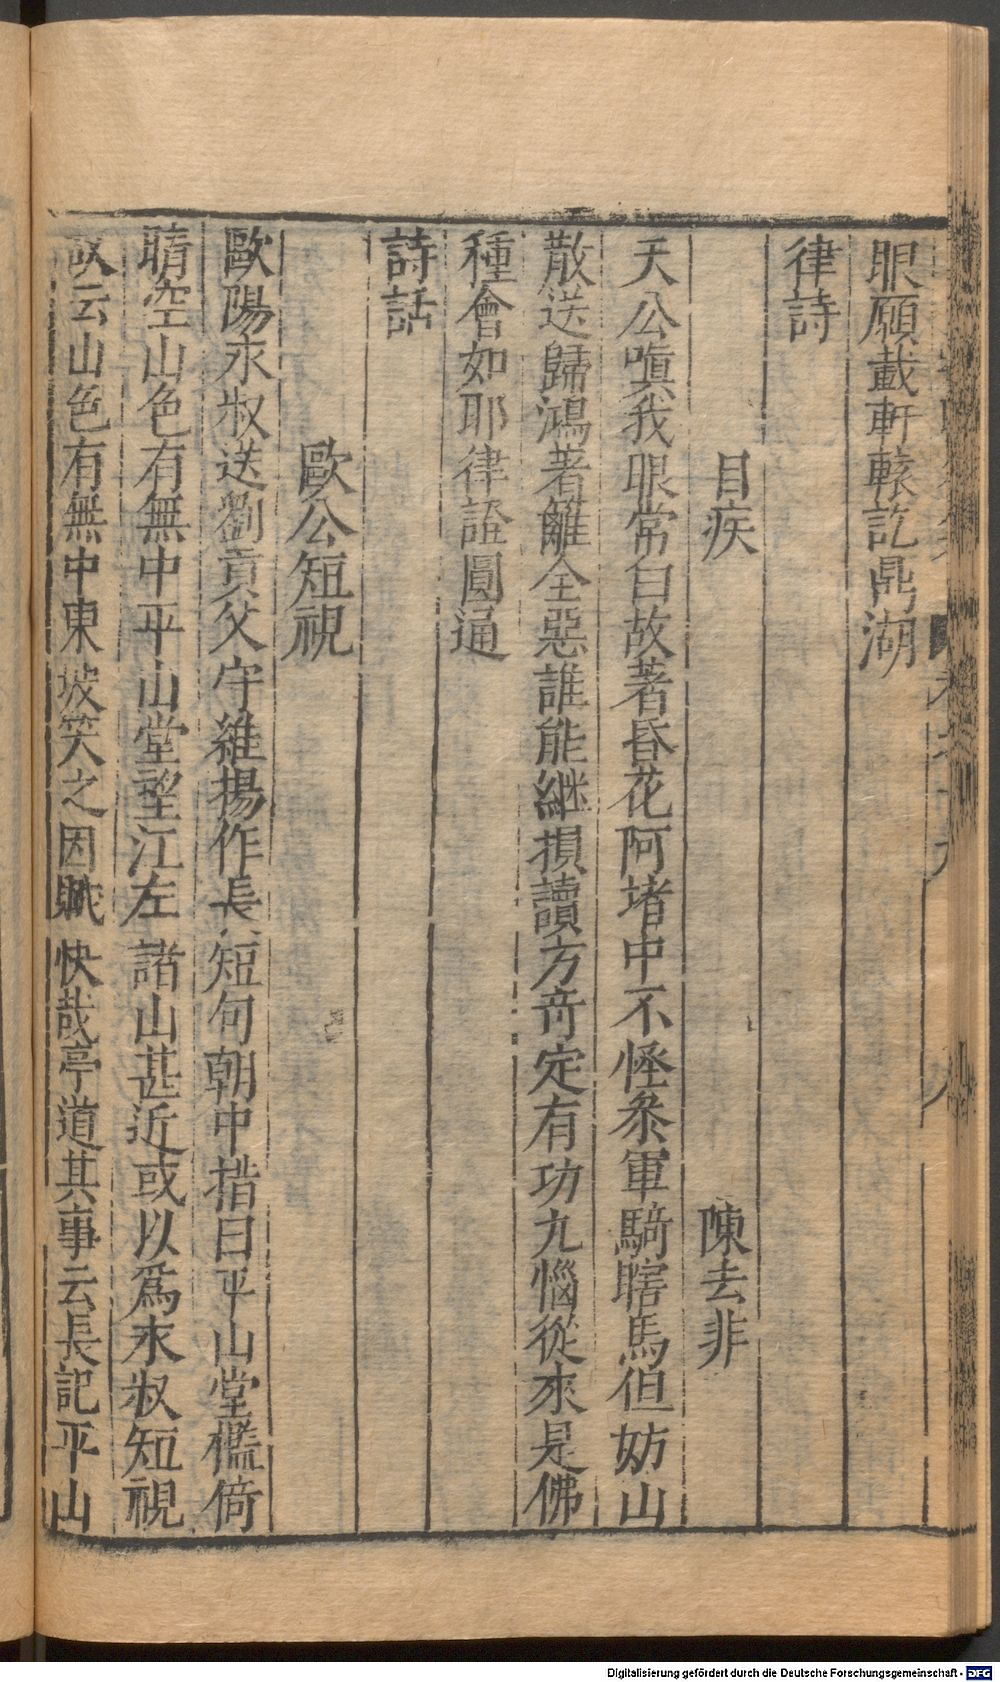 眼願載軒轅訖鼎湖
律詩
目疾 陳去非
天公嗔我眼常白故著昏花阿堵中不怪叅軍騎瞎馬但妨山
散送歸鴻著籬全惡誰能継損讀方竒定有功九惱從來是佛
種會如耶律證圓通
詩話
歐公短視
歐陽永叔送劉貢父守維揚作長短句朝中措曰平山堂檻倚
晴空山色有無中平山堂望江左諸山甚近或以爲永叔短視
故云山色有無中東坡笑之因賦快哉亭道其事云長記平山
Digitalisierung gefördert durch die Deutsche Forschungsgemeinschaft - DFG